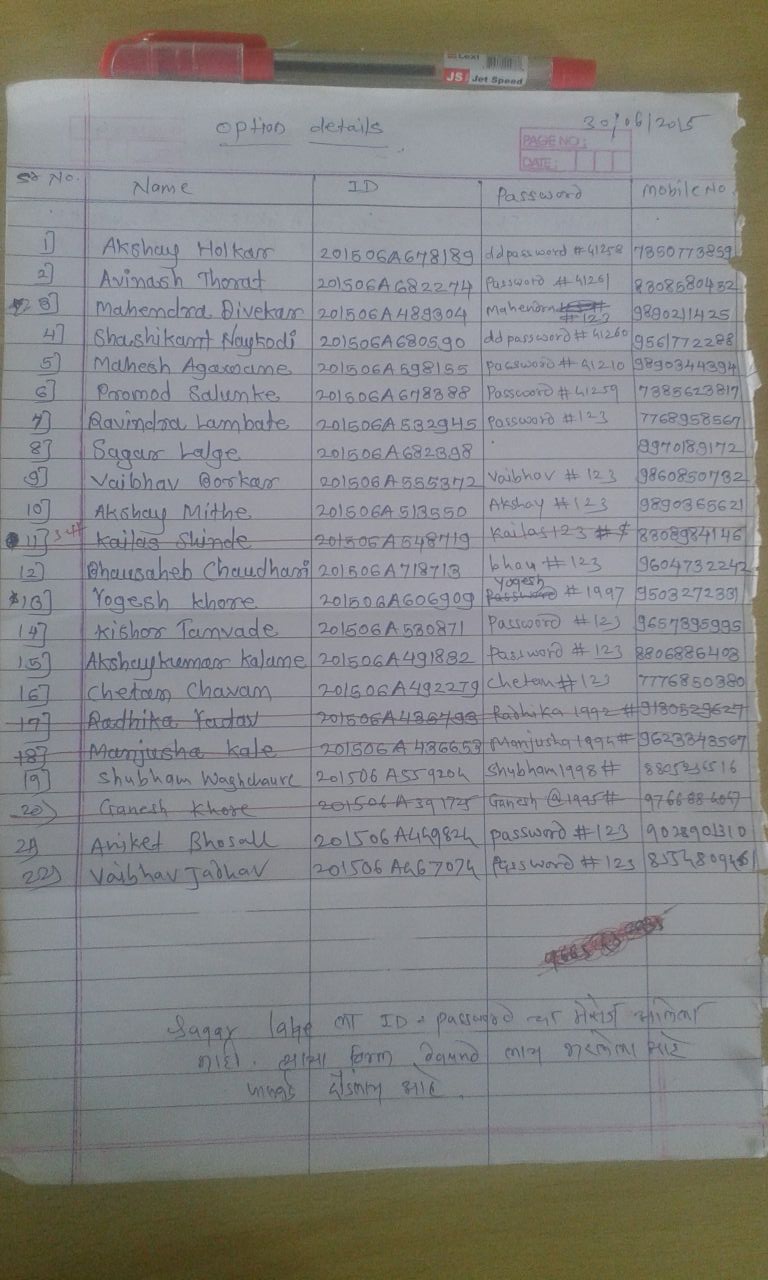 Lexi
JS Jet Speed
option details 30/06/2015
PAGE NO:
DATE:
Sr No. Name ID Password Mobile No
1] Akshay Holkar 201506A678189 ddpassword #41258 7350773859
2] Avinash Thorat 201506A682274 Password #41261 8308580432
3] Mahendra Divekar 201506A489304 #123 9890211425
4] Shashikant Naykodi 201506A680590 ddpassword #41260 9561772288
5] Mahesh Agamane 201506A598155 password #41210 9890344394
6] Promod Salunke 201506A678388 Password #41259 7385623817
7] Ravindra Lambate 201506A532945 Password #123 7768958567
8] Sagar Lalge 201506A682398 8970189172
9] Vaibhav Borkar 201506A555372 Vaibhav #123 9860850732
10] Akshay Mithe 201506A513550 Akshay #123 9890365621
11] Kailas Shinde 201506A548719 Kailas123 #$ 8308984146
12] Bhausaheb Chaudhari 201506A718713 bhau #123 9604732242
13] Yogesh Khore 201506A606909 Yogesh #1997 9503272331
14] Kishor Tanvade 201506A530871 Password #123 9657395995
15] Akshaykumar Kalame 201506A491882 Password #123 8806886403
16] Chetan Chavan 201506A492279 Chetan #123 7776850380
17] Radhika Yadav Radhika 1992 # 9130529627
18] Manjusha Kale 201506A436653 Manjusha 1994# 9623343567
19] Shubham Waghchaure 201506A559204 Shubham1998#
20) Ganesh Khore 201506A39175 Ganesh@1995#
21) Aniket Bhosall 201506A449824 password #123 9028901310
22) Vaibhav Jadhav 201506A467074 Password #123
Sagar ला ID = password चा मेसेज आलेला
नाही. फॉर्म आहे
आहे.